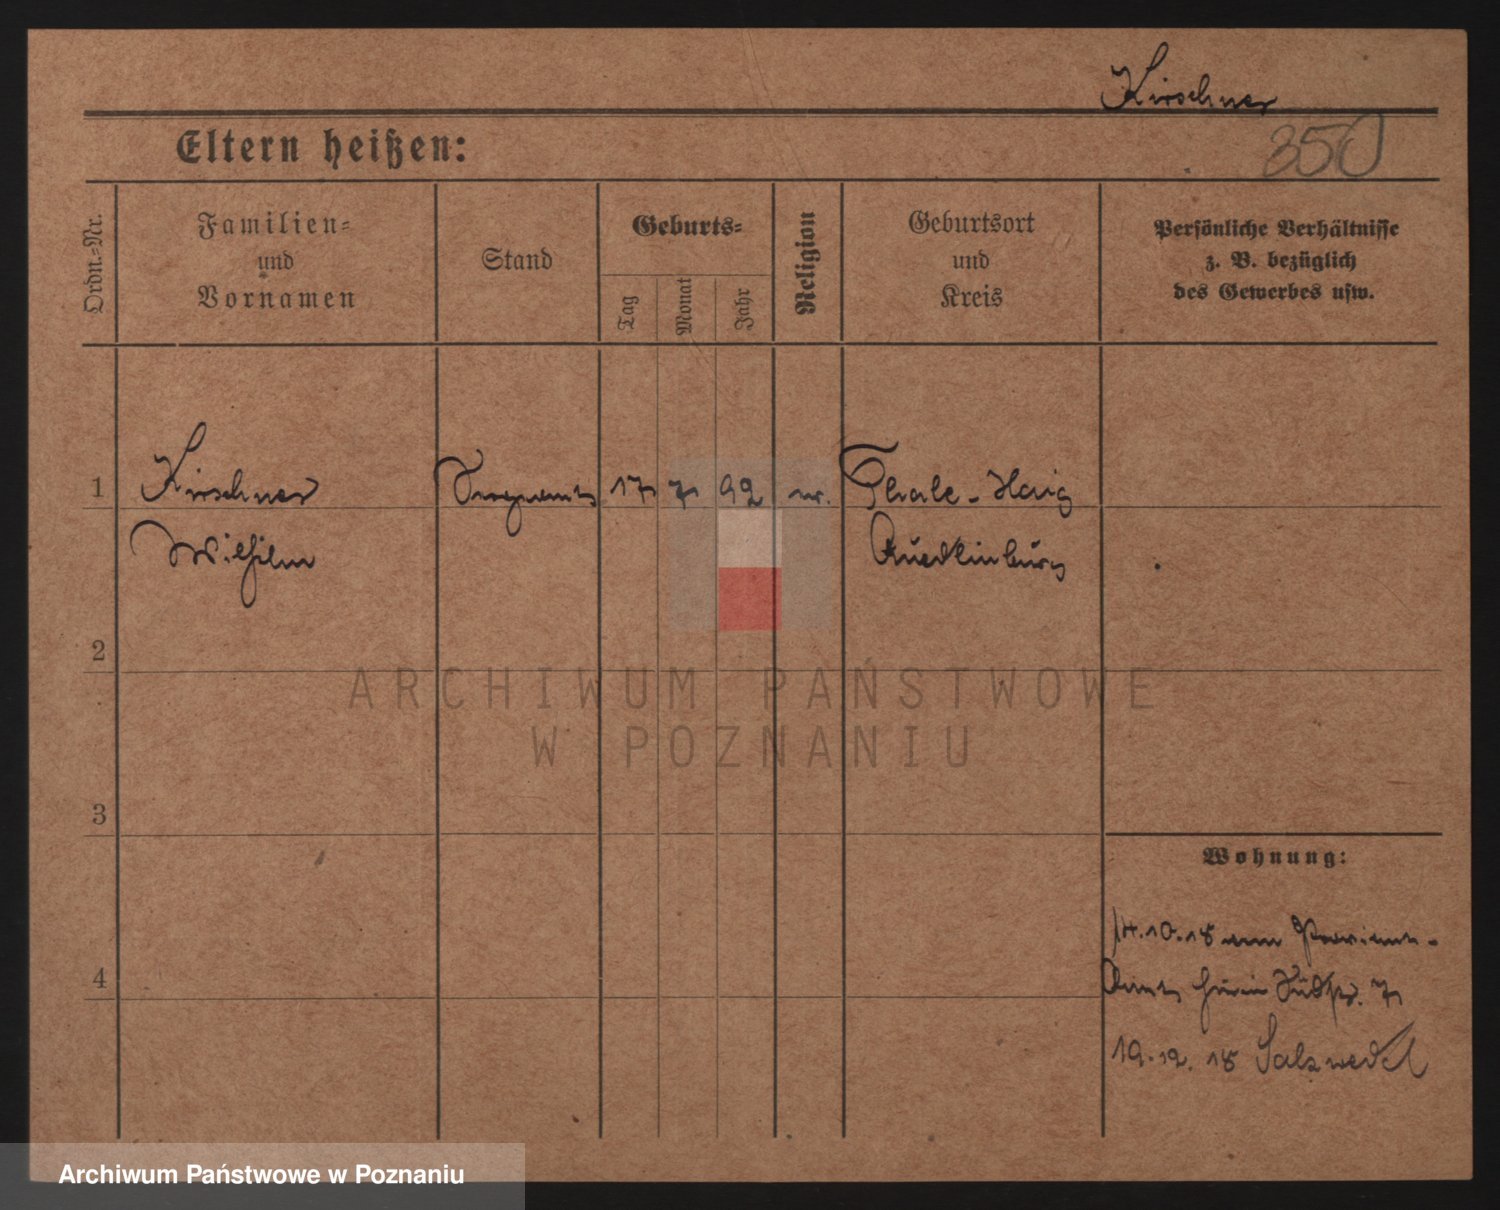 Kirschner
Eltern heißen:
350
Ordn.-Nr.
Familien-
und
Vornamen
Stand
Geburts-
Tag
Monat
Jahr
Religion
Geburtsort
und
Kreis
Persönliche Verhältnisse
z. B. bezüglich
des Gewerbes usw.
1 Kirschner 17 7 92 Thale-Harz
Wilhelm Quedlinburg
2
ARCHIWUM PAŃSTWOWE
W POZNANIU
3
Wohnung:
14.10.18
4
19.12.18 Salzwedel
Archiwum Państwowe w Poznaniu